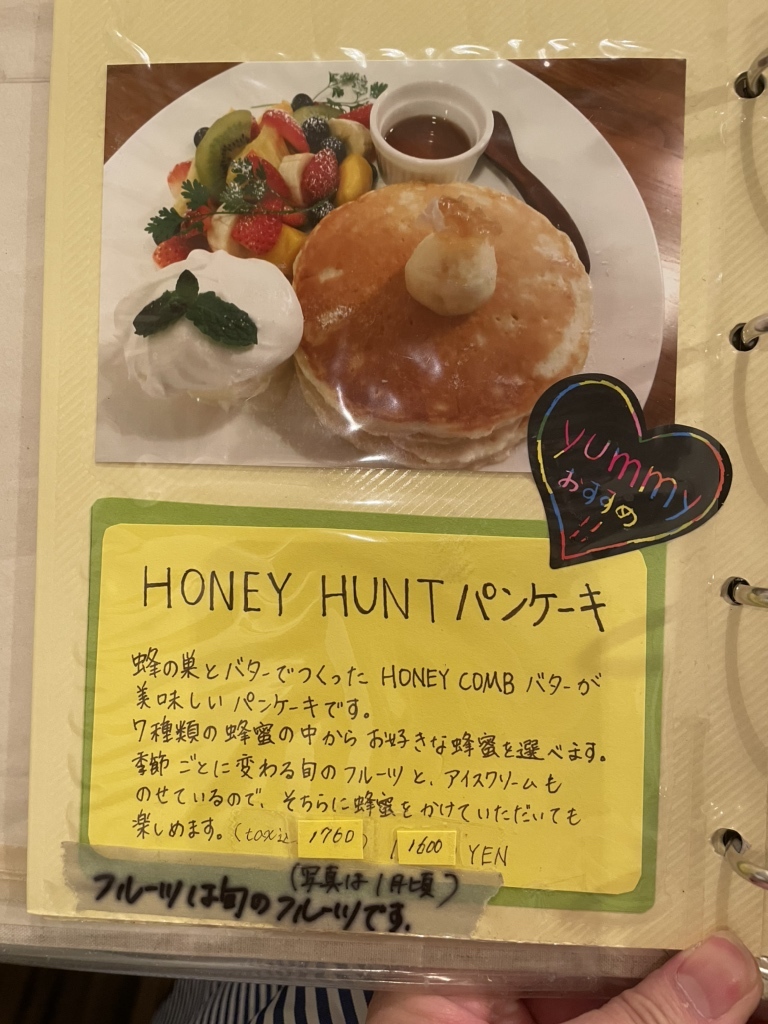 yummy
おすすめ
HONEY HUNT パンケーキ
蜂の巣とバターでつくった HONEY COMB バターが
美味しいパンケーキです。
7種類の蜂蜜の中からお好きな蜂蜜を選べます。
季節ごとに変わる旬のフルーツと、アイスクリームも
のせているので、そちらに蜂蜜をかけていただいても
楽しめます。(tax込 1760) 1600 YEN
(写真は1月頃)
フルーツは旬のフルーツです.